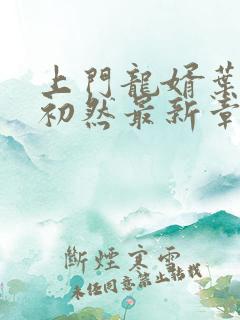 上門龍婿葉
初然最新章
斷煙寒雪
未经同意禁止转载